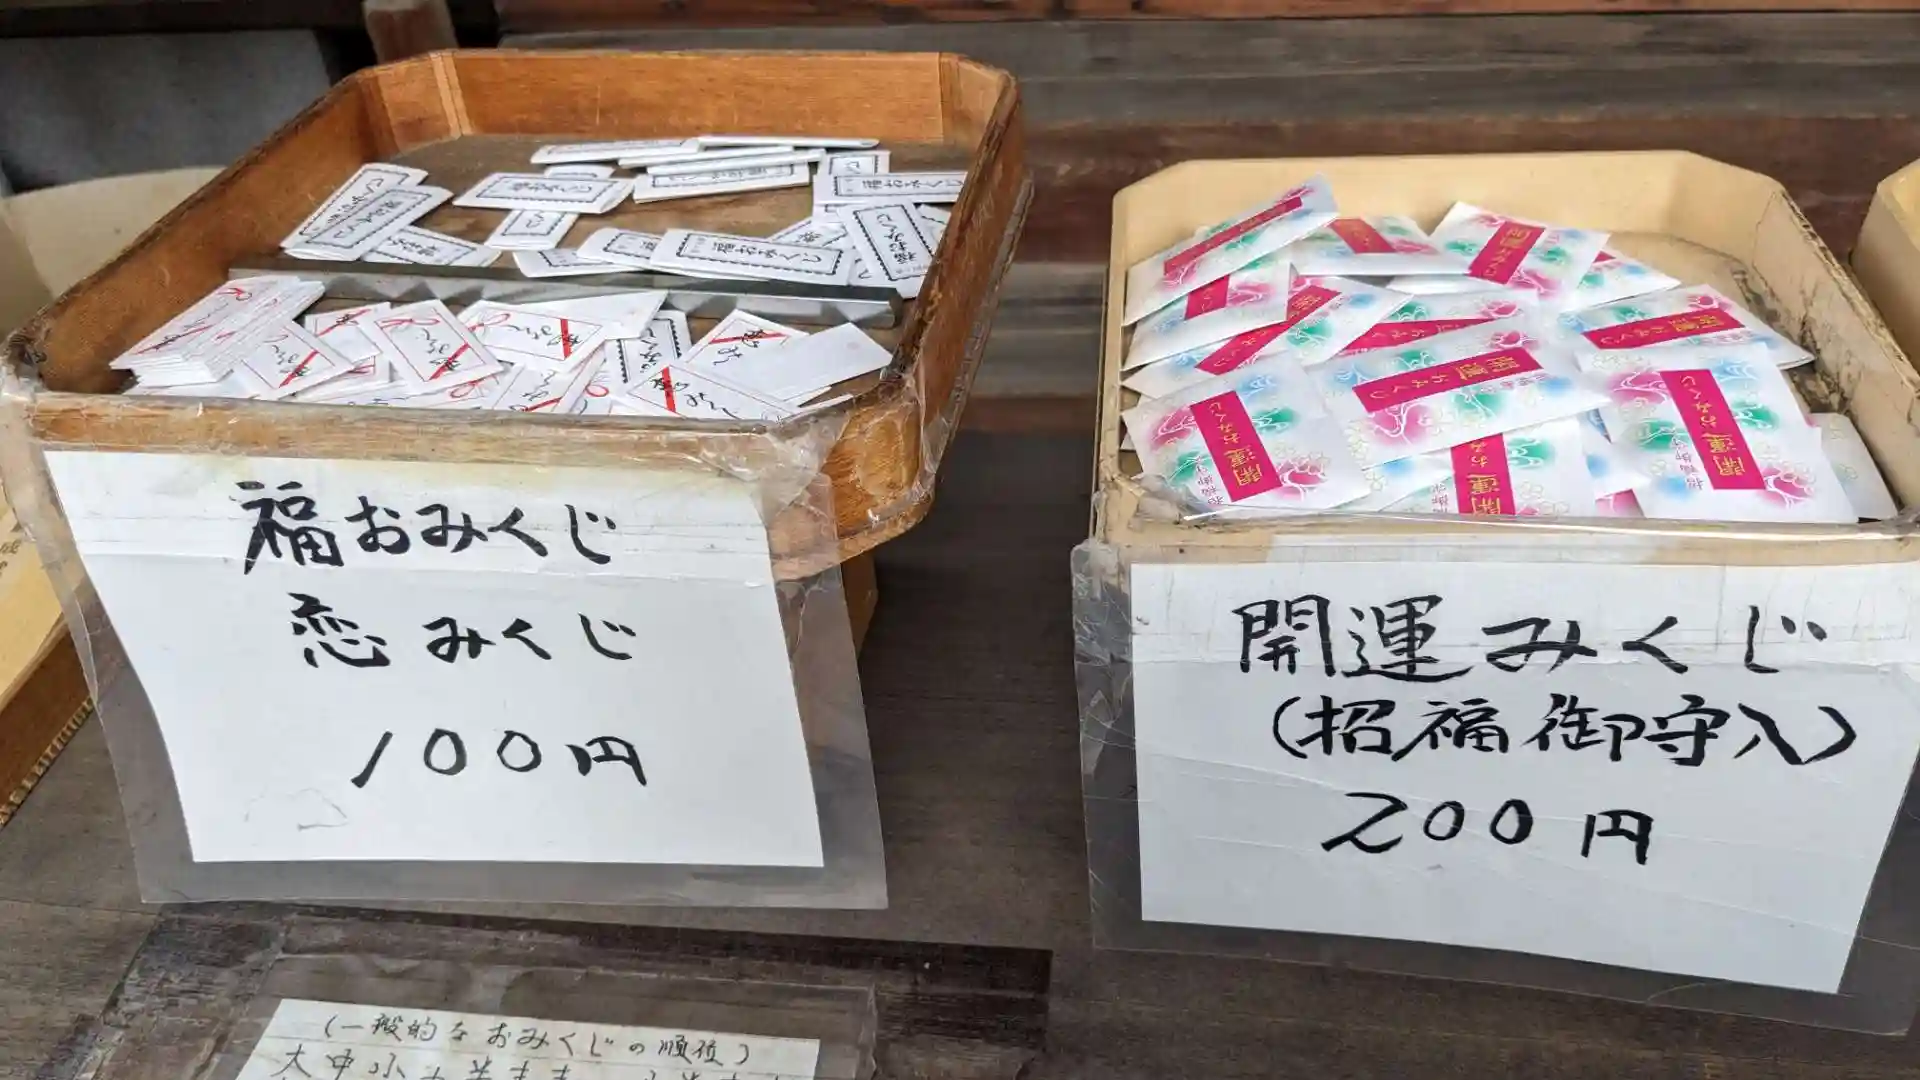 福おみくじ
恋みくじ
100円
開運みくじ
(招福御守入)
200円
(一般的なおみくじの順位)
福おみくじ
開運おみくじ
招福御守